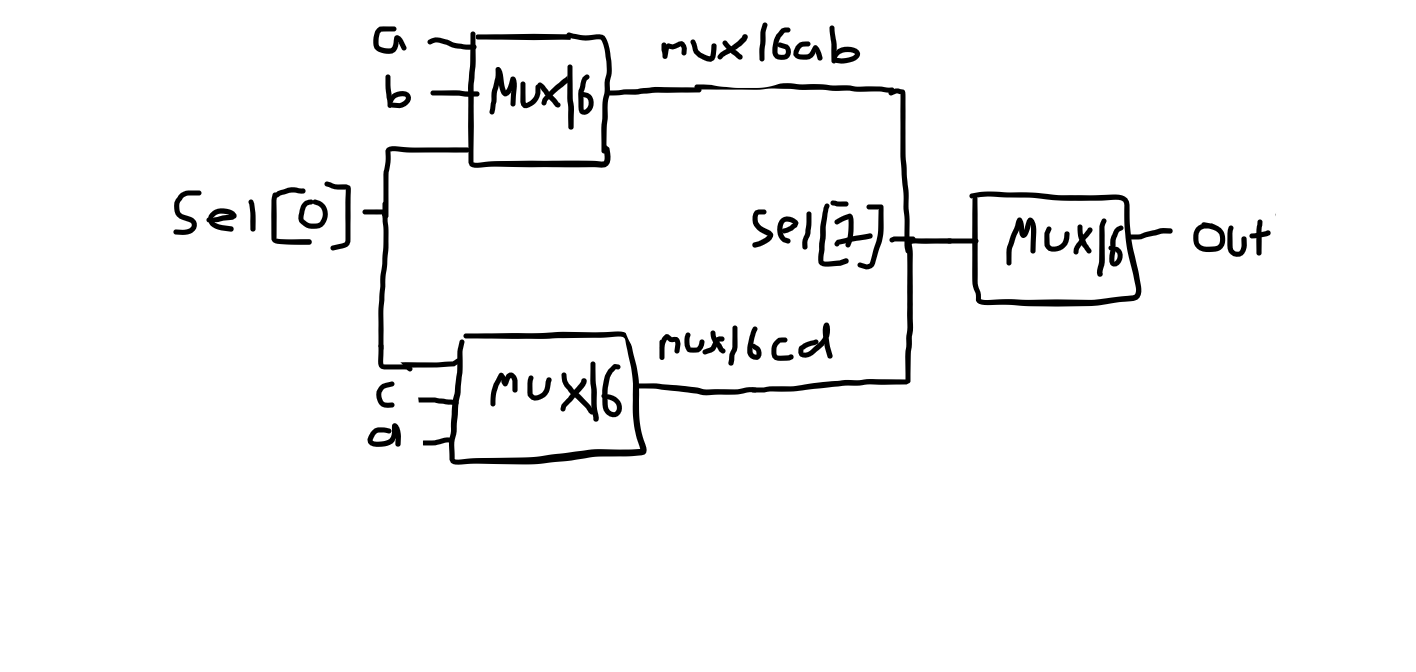 a
mux16ab
b
Mux16
Sel[0]
Sel[1]
Mux16
out
mux16cd
c
mux16
d